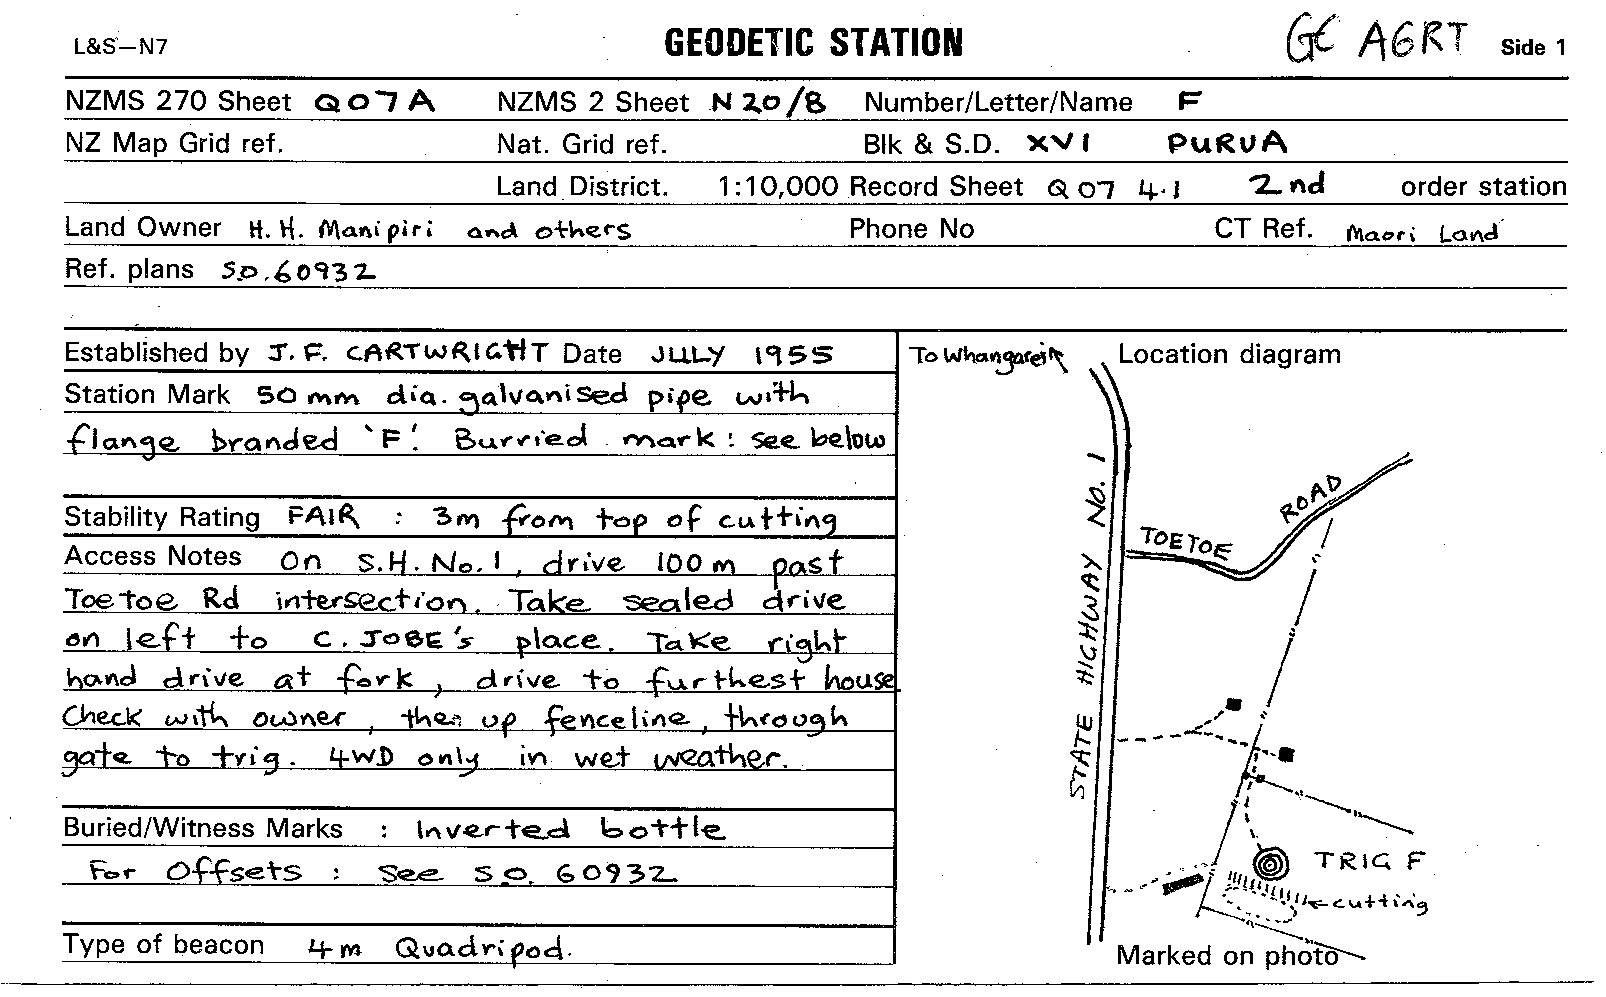 L&S-N7 GEODETIC STATION GC AGRT Side 1
NZMS 270 Sheet Q07A NZMS 2 Sheet N20/8 Number/Letter/Name F
NZ Map Grid ref. Nat. Grid ref. Blk & S.D. XVI PURUA
Land District. 1:10,000 Record Sheet Q07 4.1 2nd order station
Land Owner H.H. Manipiri and others Phone No CT Ref. Maori Land
Ref. plans S.O.60932
Established by J.F. CARTWRIGHT Date JULY 1955
Station Mark 50mm dia. galvanised pipe with
flange branded 'F'. Burried mark: see below
Stability Rating FAIR : 3m from top of cutting
Access Notes On S.H. No.1, drive 100m past
Toetoe Rd intersection. Take sealed drive
on left to C. JOBE's place. Take right
hand drive at fork, drive to furthest house
Check with owner, then up fenceline, through
gate to trig. 4WD only in wet weather.
Buried/Witness Marks : Inverted bottle
For Offsets : See S.O. 60932
Type of beacon 4m Quadripod.
To Whangarei
Location diagram
STATE HIGHWAY No. 1
TOETOE ROAD
TRIG F
cutting
Marked on photo